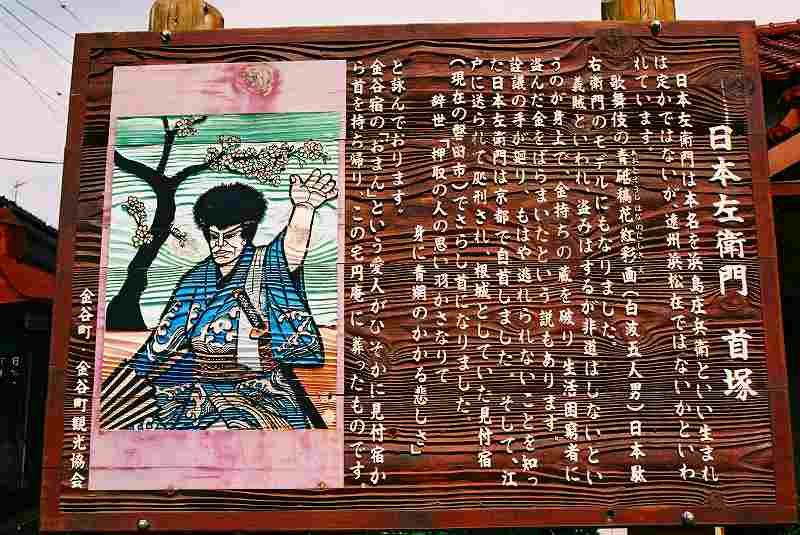 日本左衛門 首塚
日本左衛門は本名を浜島庄兵衛といい、生まれ
は定かではないが、遠州浜松在ではないかといわ
れています。
歌舞伎の青砥稿花紅彩画(白波五人男)日本駄
右衛門のモデルにもなりました。
義賊といわれ、盗みはするが非道はしないとい
うのが身上で、金持ちの蔵を破り、生活困窮者に
盗んだ金をばらまいたという説もあります。
詮議の手が廻り、もはや逃れられないことを知っ
た日本左衛門は京都で自首しました。そして、江
戸に送られて処刑され、根城としていた見付宿
(現在の磐田市)でさらし首になりました。
辞世「押取の人の思い羽かさなりて
身に青網のかかる悲しさ」
と詠んでおります。
金谷宿の「おまん」という愛人がひそかに見付宿か
ら首を持ち帰り、この宅円庵に葬ったものです。
金谷町 金谷町観光協会